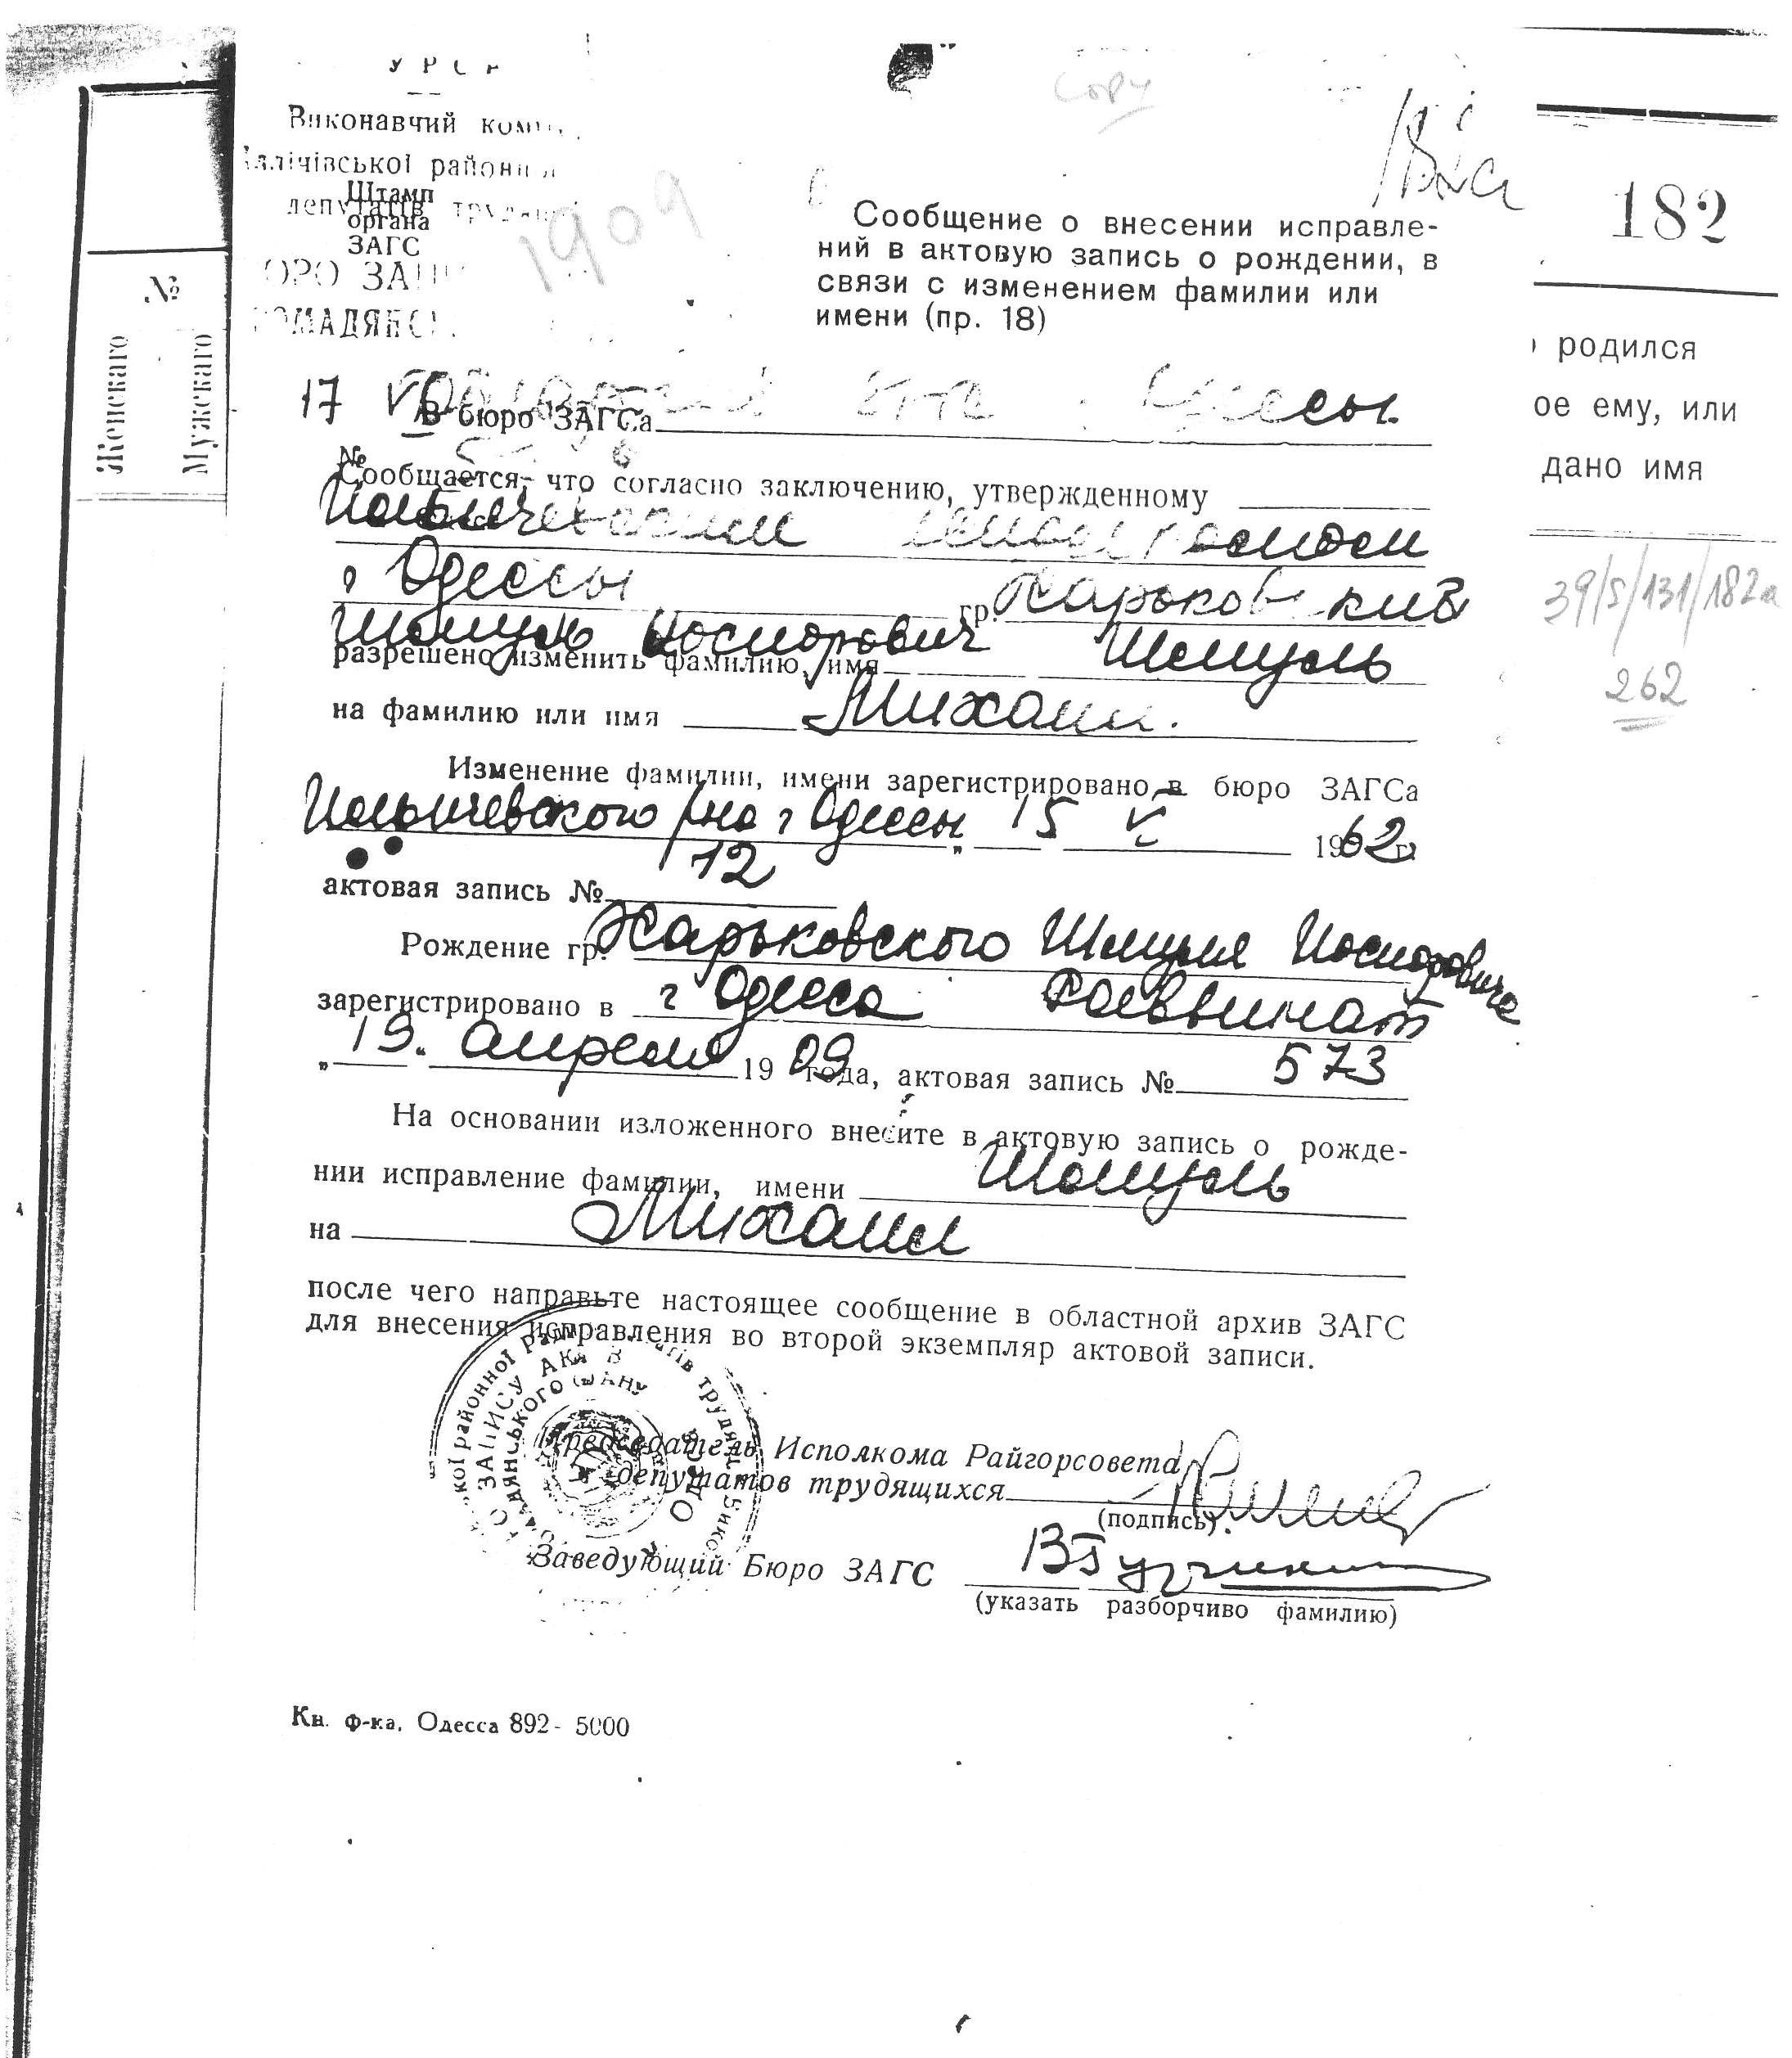 У Р С Р
Виконавчий
районн
депутатів
Штамп
органа
ЗАГС
COPY
1909
182
Сообщение о внесении исправле-
ний в актовую запись о рождении, в
связи с изменением фамилии или
имени (пр. 18)
№
Женскаго
Мужскаго
родился
ое ему, или
дано имя
39/5/131/182а
262
17
В бюро ЗАГСа Одессы
№
Сообщается, что согласно заключению, утвержденному
Ильичевским исполкомом
г Одессы гр. Харьковский
Шмуль Иосифович
разрешено изменить фамилию, имя Шмуль
на фамилию или имя Михаил.
Изменение фамилии, имени зарегистрировано в бюро ЗАГСа
Ильичевского р-на г Одессы „ 15 V 1962 г.
актовая запись № 12
Рождение гр. Харьковского Шмуля Иосифовича
зарегистрировано в г Одесса Раввинат
„19“ апреля 1909 года, актовая запись № 573
На основании изложенного внесите в актовую запись о рожде-
нии исправление фамилии, имени Шмуль
на Михаил
после чего направьте настоящее сообщение в областной архив ЗАГС
для внесения исправления во второй экземпляр актовой записи.
Председатель Исполкома Райгорсовета
депутатов трудящихся
(подпись)
Заведующий Бюро ЗАГС
(указать разборчиво фамилию)
Кн. ф-ка, Одесса 892 - 5000